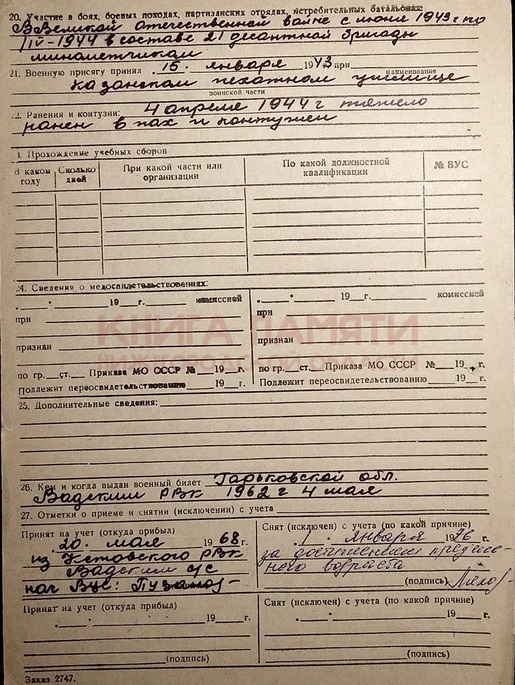 20. Участие в боях, боевых походах, партизанских отрядах, истребительных батальонах:
В Великой Отечественной войне с июня 1943 г по
IV-1944 в составе 21 десантной бригады
минометчиком
21. Военную присягу принял 15. января 1943 при
наименование
казанском пехотном училище
воинской части
22. Ранения и контузии: 4 апреля 1944 г тяжело
ранен в пах и контужен
23. Прохождение учебных сборов
В каком году Сколько дней При какой части или организации По какой должностной квалификации № ВУС
24. Сведения о медосвидетельствованиях:
19 г. комиссией 19 г. комиссией
при при
КНИГА ПАМЯТИ
признан признан
НИЖЕГОРОДСКОЙ ОБЛАСТИ
по гр. ст. Приказа МО СССР № 19 г. по гр. ст. Приказа МО СССР № 19 г.
Подлежит переосвидетельствованию 19 г. Подлежит переосвидетельствованию 19 г.
25. Дополнительные сведения:
26. Кем и когда выдан военный билет Горьковской обл.
Вадским РВК 1962 г 4 мая
27. Отметки о приеме и снятии (исключении) с учета
Принят на учет (откуда прибыл)
20. мая 1968 г.
из Кстовского РВК
Вадским УС
нач ВУС: Пузанов
Снят (исключен) с учета (по какой причине)
1. января 1976 г.
за достижением предельного возраста
(подпись)
Принят на учет (откуда прибыл)
19 г.
(подпись)
Снят (исключен) с учета (по какой причине)
19 г.
(подпись)
Заказ 2747.